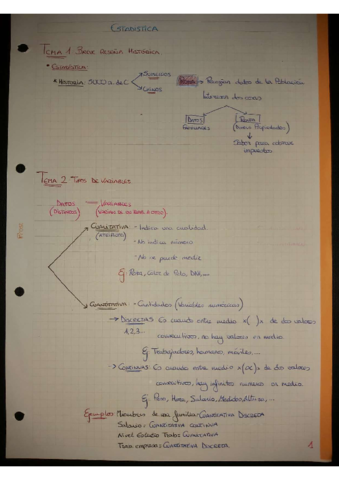 ESTADÍSTICA
TEMA 1 BREVE RESEÑA HISTÓRICA
• ESTADÍSTICA:
• HISTORIA: 5000 a. de C
SUMERIOS
CHINOS
ROMA → Recogían datos de la Población
Literatura del censo
Bienes
Personas
(Bienes Propiedades)
→ Datos para cobrar impuestos
TEMA 2 TIPOS DE VARIABLES
DATOS — VARIABLES
CUALITATIVA - Indican una cualidad
(ATRIBUTOS)
- No indica número
- No se puede medir
Ej: Pelo, Color de Pelo, DNI...
CUANTITATIVA - Cantidades (Variables numéricas)
→ DISCRETAS: Es cuando entre medio de dos valores
1,2,3... consecutivos, no hay valores en medio
Ej: Trabajadores, hermanos, móviles...
→ CONTINUAS: Es cuando entre medio de dos valores
consecutivos, hay infinitos números en medio
Ej: Peso, Hora, Salario, Altura...
Ejemplos: Miembros de una familia: CUANTITATIVA DISCRETA
Salario: CUANTITATIVA CONTINUA
Nivel Estudio: CUALITATIVA
CUANTITATIVA DISCRETA
1